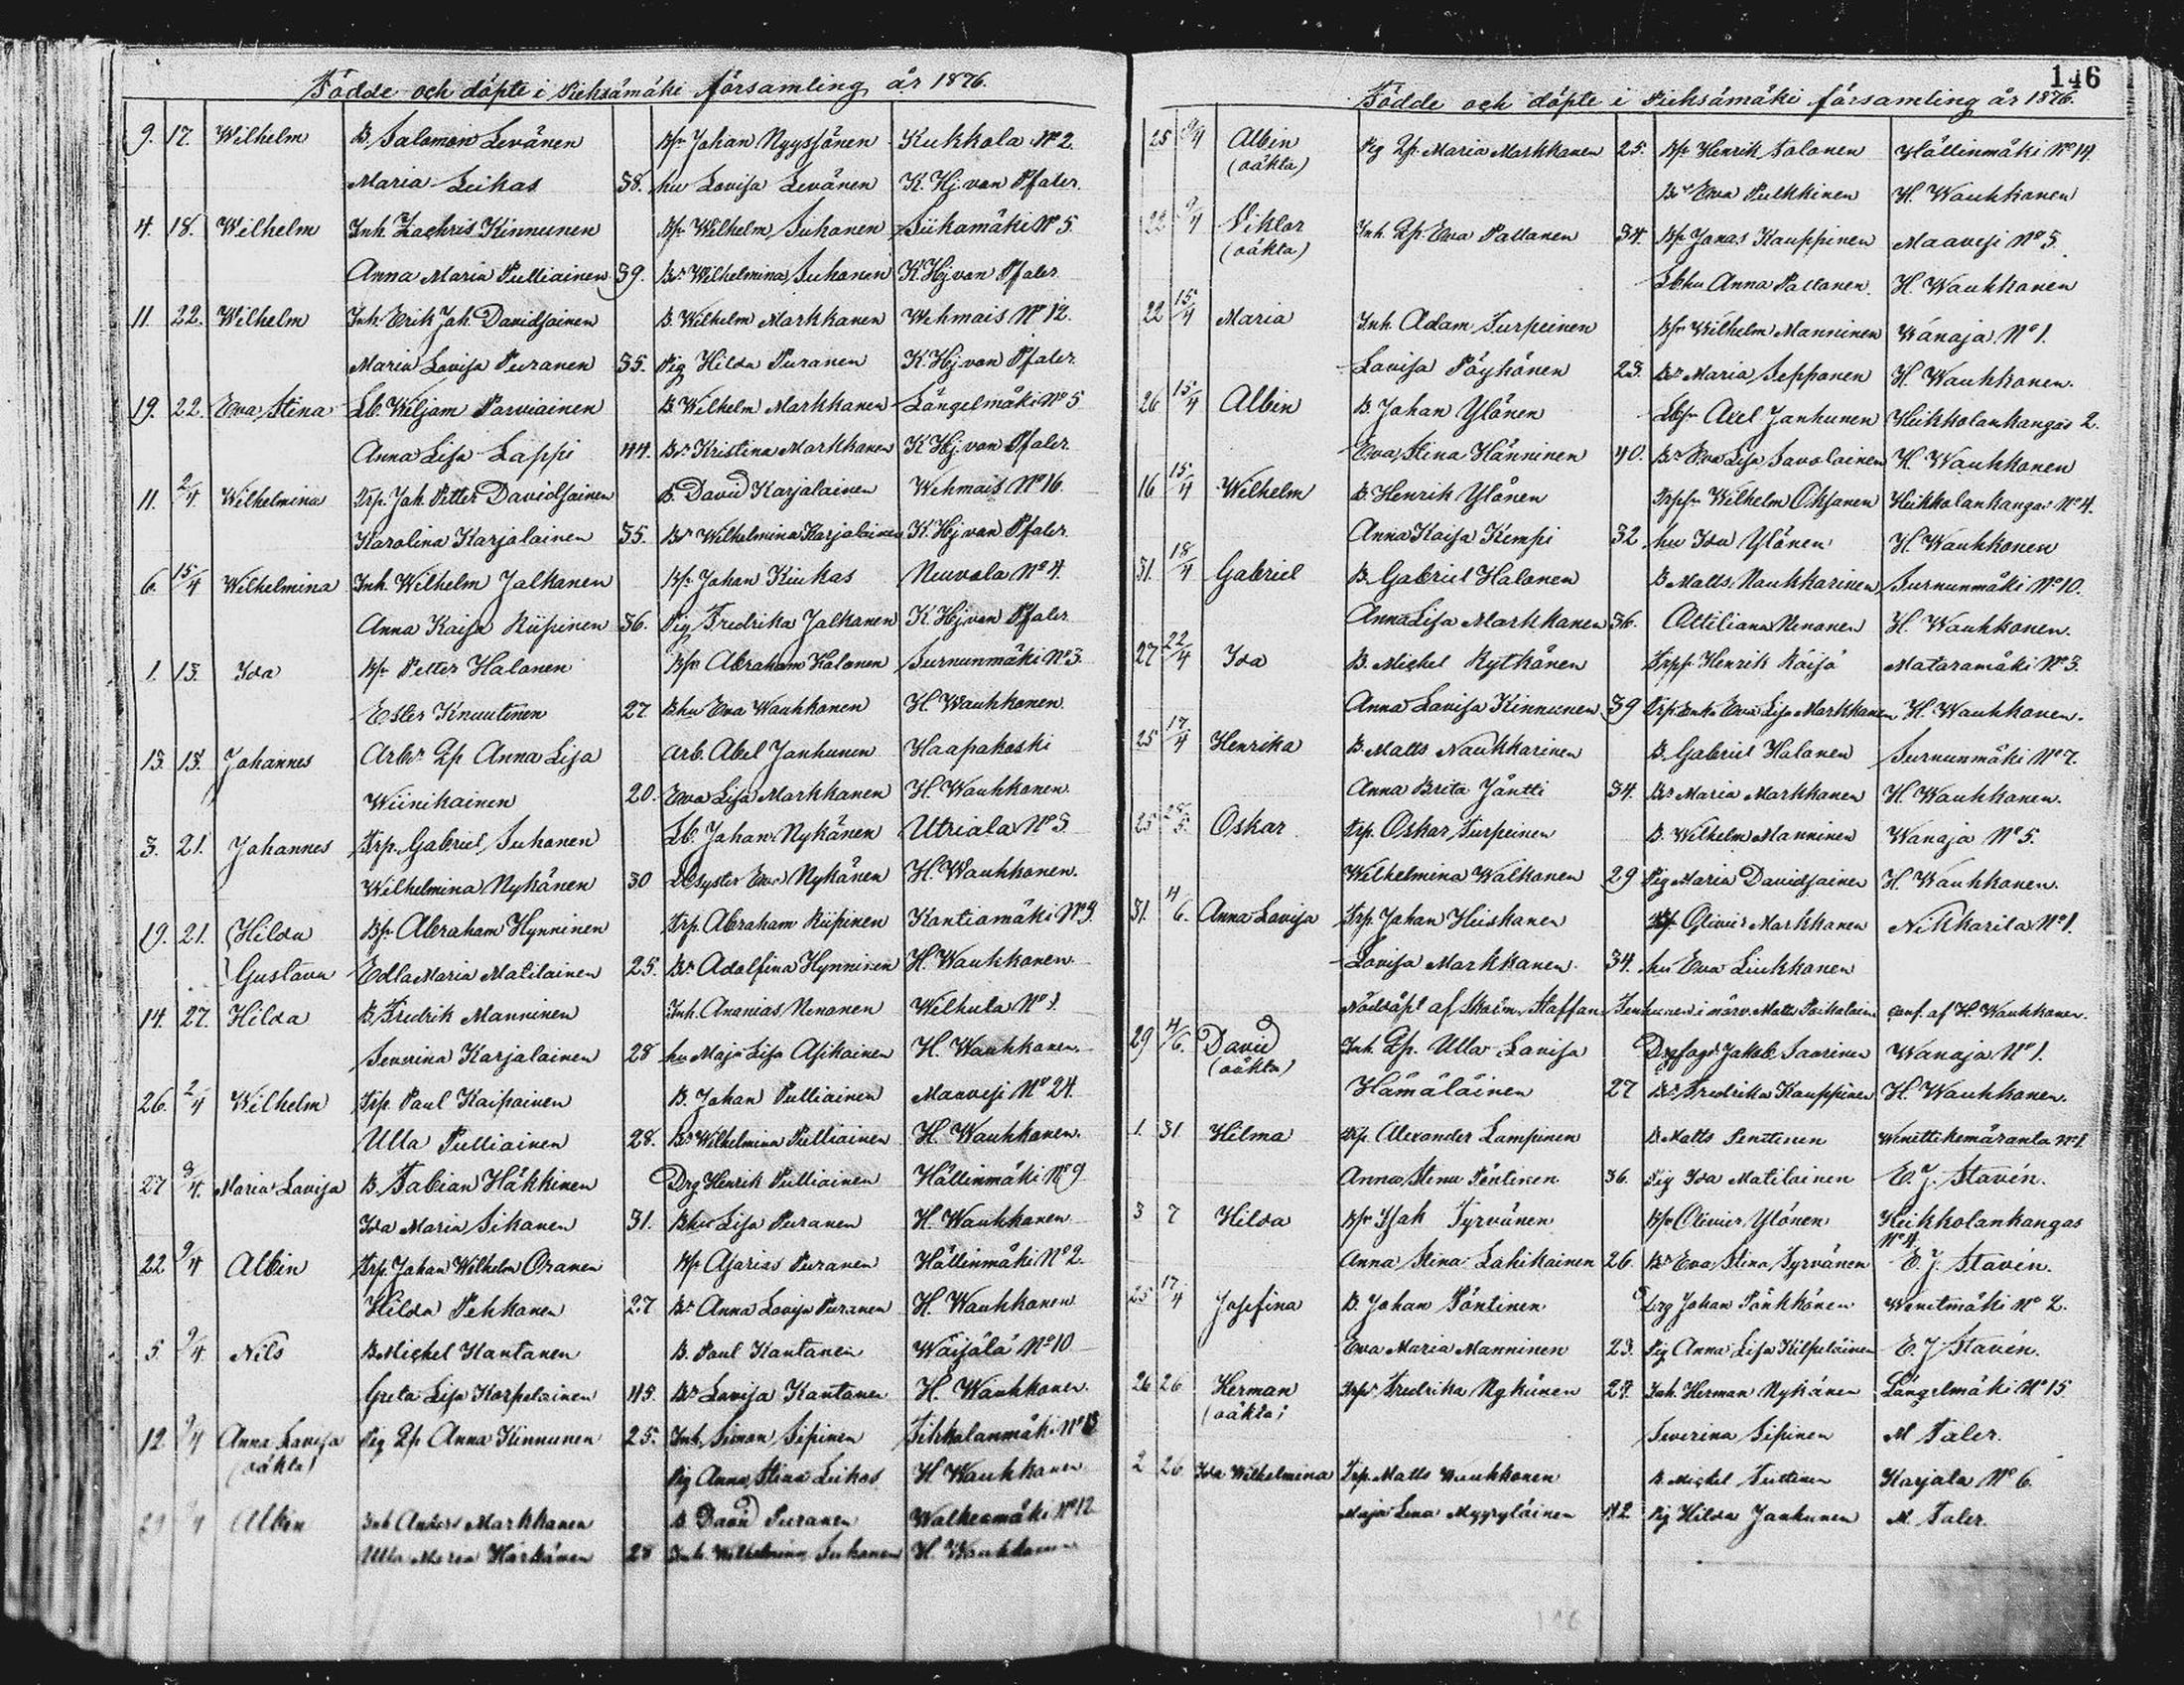 Födde och döpte i Pieksämäki församling år 1876.
9. 17. Wilhelm B. Salomon Levänen Bſr Johan Nyyssönen Kukkola No 2.
Maria Leikas 38. hu Lovisa Levänen K. Hj. von Pfaler.
4. 18. Wilhelm Inh. Zachris Kinnunen Bſr Wilhelm Suhonen Siikamäki No 5.
Anna Maria Pulliainen 39. Br Wilhelmina Suhonen K. Hj. von Pfaler
11. 22. Wilhelm Inh. Erik Joh. Davidsainen B. Wilhelm Markkanen Wehmais No 12.
Maria Lovisa Puranen 35. Pig Hilda Puranen K. Hj. von Pfaler.
19. 22. Eva Stina Lb. Wiljam Parviainen B. Wilhelm Markkanen Längelmäki No 5
Anna Lisa Lappi 44. Br Kristina Markkanen K Hj. von Pfaler.
11. 2/4. Wilhelmina Trp. Joh. Petter Davidsainen B. David Karjalainen Wehmais No 16.
Karolina Karjalainen 35. Br Wilhelmina Karjalainen K. Hj. von Pfaler.
6. 15/4 Wilhelmina Inh. Wilhelm Jalkanen Bſr Johan Kiukas Neuvola No 4.
Anna Kaisa Riipinen 36. Pig Fredrika Jalkanen K. Hj. von Pfaler
1. 13. Ida Bſr Petter Halonen Bſr Abraham Halonen Surnunmäki No 3.
Ester Knuutinen 27. Bhu Eva Wauhkonen H. Wauhkonen
13. 13. Johannes Arbr Qp Anna Lisa Arb. Abel Janhunen Haapakoski
Wiinikainen 20. Eva Lisa Markkanen H. Wauhkonen.
3. 21. Johannes Trp. Gabriel Suhonen Lb. Johan Nykänen Utriala No 3
Wilhelmina Nykänen 30 Lbsyster Eva Nykänen H. Wauhkonen.
19. 21. Hilda Bſr Abraham Hynninen Trp. Abraham Riipinen Kontiomäki No 9.
Gustava Edla Maria Matilainen 25. Br Adolfina Hynninen H. Wauhkonen
14. 27. Hilda B. Fredrik Manninen Inh. Ananias Nenonen Wilhula No 1.
Severina Karjalainen 28 hu Maja Lisa Asikainen H. Wauhkonen.
26. 2/4 Wilhelm Trp. Paul Kaipainen B. Johan Pulliainen Maavesi No 24.
Ulla Pulliainen 28. Br Wilhelmina Pulliainen H. Wauhkonen.
27 9/4. Maria Lovisa B. Fabian Häkkinen Drg Henrik Pulliainen Hällinmäki No 9
Ida Maria Sikanen 31. Bhu Lisa Puranen H. Wauhkonen
22 9/4 Albin Trp. Johan Wilhelm Oranen Bſr Asarias Puranen Hällinmäki No 2.
Hilda Pehkonen 27 Br Anna Lovisa Puranen H. Wauhkonen
5. 9/4. Nils B. Michel Kantanen B. Paul Kantanen Waijälä No 10
Greta Lisa Korpelainen 45. Br Lovisa Kantanen H. Wauhkonen.
12. 9/4 Anna Lovisa Pig Qp Anna Kinnunen 25. Inh. Simon Sipinen Sikkalanmäki No 13
(oäkta) Pig Anna Stina Leikas H Wauhkonen
9/4 Albin Inh Anders Markkanen B. David Puranen Walkeamäki No 12
Ulla Maria Härkönen 28 Inh. Wilhelmina Suhonen H. Wauhkonen
146
Födde och döpte i Pieksämäki församling år 1876.
25 9/4 Albin Pig Qp. Maria Markkanen 25. Bſr Henrik Salonen Hällinmäki No 14.
(oäkta) Br Eva Pulkkinen H. Wauhkonen
22 9/4 Viktor Inh. Qp. Eva Paltanen 34. Bſr Jonas Kauppinen Maavesi No 5.
(oäkta) Lbhu Anna Paltanen. H. Wauhkonen
22 15/4 Maria Inh. Adam Turpeinen Bſr Wilhelm Manninen Wanaja No 1.
Lovisa Pöyhönen 23. Br Maria Sepponen H. Wauhkonen.
26 15/4 Albin B. Johan Ylönen Lbſr Axel Janhunen Heikkolankangas 2.
Eva Stina Hänninen 40. Br Eva Lisa Savolainen H. Wauhkonen
16 15/4 Wilhelm B. Henrik Ylönen Trpſr Wilhelm Oksanen Heikkolankangas No 4.
Anna Kaisa Kempi 32 hu Ida Ylönen H. Wauhkonen
31. 18/4 Gabriel B. Gabriel Halonen B. Matts Naukkarinen Surnunmäki No 10.
Anna Lisa Markkanen 36. Ottiliana Nenonen H. Wauhkonen.
27 22/4 Ida B. Michel Rytkönen Trpſr Henrik Räisä Mataramäki No 3.
Anna Lovisa Kinnunen 39 Trp.enka Eva Lisa Markkanen H. Wauhkonen.
25 17/4 Henrika B. Matts Naukkarinen B. Gabriel Halonen Surnunmäki No 7.
Anna Brita Jäntti 34. Br Maria Markkanen H. Wauhkonen.
25 28/5. Oskar Trp. Oskar Turpeinen B. Wilhelm Manninen Wanaja No 5.
Wilhelmina Walkonen 29 Pig Maria Davidsainen H. Wauhkonen.
31. 4/6. Anna Lovisa Trp. Johan Hiiskanen Bſr Olivier Markkanen Nikkarila No 1.
Lovisa Markkanen 34. hu Eva Liukkonen
Nöddöpt af Skolm. Staffan Tenhunen i närv. Matts Poikolainen conf. af H. Wauhkonen.
29 4/6. David Inh. Qp. Ulla Lovisa Jakob Saarinen Wanaja No 1.
(oäkta) Hämäläinen 27 Br Fredrika Kauppinen H. Wauhkonen.
1. 31 Hilma Trp. Alexander Lampinen B. Matts Penttinen
Anna Stina Pöntinen 36. Pig Ida Matilainen E. J. Stavén.
3 7 Hilda Bſr Isak Tyrvänen Bſr Olivier Ylönen Heikkolankangas
No 4.
Anna Stina Lahikainen 26. Br Eva Stina Tyrvänen E. J. Stavén.
25 17/4 Josefina B. Johan Pöntinen Drg Johan Pönkkönen Wenetmäki No 2.
Eva Maria Manninen 23. Pig Anna Lisa Kilpeläinen E. J Stavén.
26 26 Herman Trpr Fredrika Nykänen 27. Inh. Herman Nykänen Längelmäki No 15
(oäkta) Severina Sipinen M Faler.
2 26 Ida Wilhelmina Trp. Matts Wauhkonen B. Michel Karjala No 6.
Maja Lena Myyryläinen 42 Pig Hilda Janhunen M. Faler.